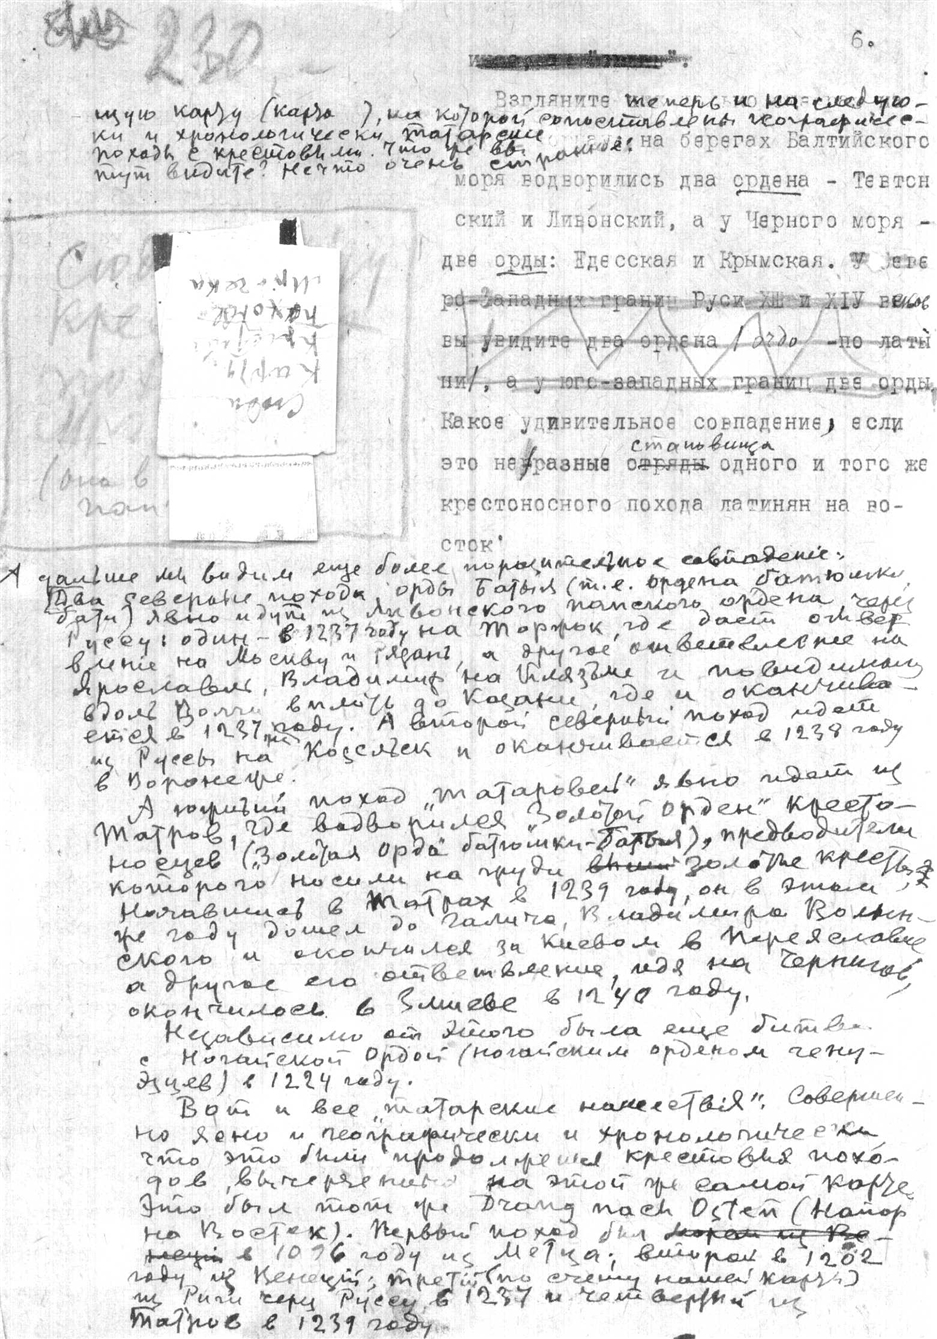 230
6.
Взгляните теперь и на следую-
щую карту (карта ), на которой сопоставлены географичес-
ки и хронологически татарские
походы с крестовыми. Что же вы
тут видите? Нечто очень странное:
на берегах Балтийского
моря водворились два ордена - Тевтон
ский и Ливонский, а у Черного моря -
две орды: Едесская и Крымская. У
ро-западных границ Руси XIII и XIV веков
вы увидите два ордена /ordo -по латы
ни/, а у юго-западных границ две орды
Какое удивительное совпадение, если
становища
это не разные отряды одного и того же
крестоносного похода латинян на во-
сток!
Сюда
карту
крестов
походов
А дальше мы видим еще более поразительное совпадение:
Два северные похода орды Батыя (т.е. ордена батюшки
бати) явно идут из Ливонского папского ордена через
Руссу: один - в 1237 году на Торжок, где дает ответ
вление на Москву и Рязань, а другое ответвление на
Ярославль, Владимир на Клязьме и повидимому
вдоль Волги вплоть до Казани, где и оканчива-
ется в 1237 году. А второй северный поход идет
из Руссы на Козельск и оканчивается в 1238 году
в Воронеже.
А южный поход "татаровей" явно идет из
Татров, где водворился "Золотой орден" кресто-
носцев (Золотая орда батюшки-Батыя), предводители
которого носили на груди золотые кресты
Начавшись в Татрах в 1239 году, он в этом
же году дошел до Галича, Владимира Волын-
ского и окончился за Киевом в Переяславле
а другое его ответвление, идя на Чернигов,
окончилось в Змиеве в 1240 году.
Независимо от этого была еще битва
с Ногайской Ордой (ногайским орденом гену-
эзцев) в 1224 году.
Вот и все "татарские нашествия". Совершен-
но ясно и географически и хронологически
что это были продолжения крестовых похо-
дов, вычерченных на этой же самой карте
Это был тот же Drang nach Osten (Напор
на Восток). Первый поход был морем из Ве-
неции в 1096 году из Метца; второй в 1202
году из Венеции; третий (по счету нашей карты)
из Риги через Руссу в 1237 и четвертый из
Татров в 1239 году.